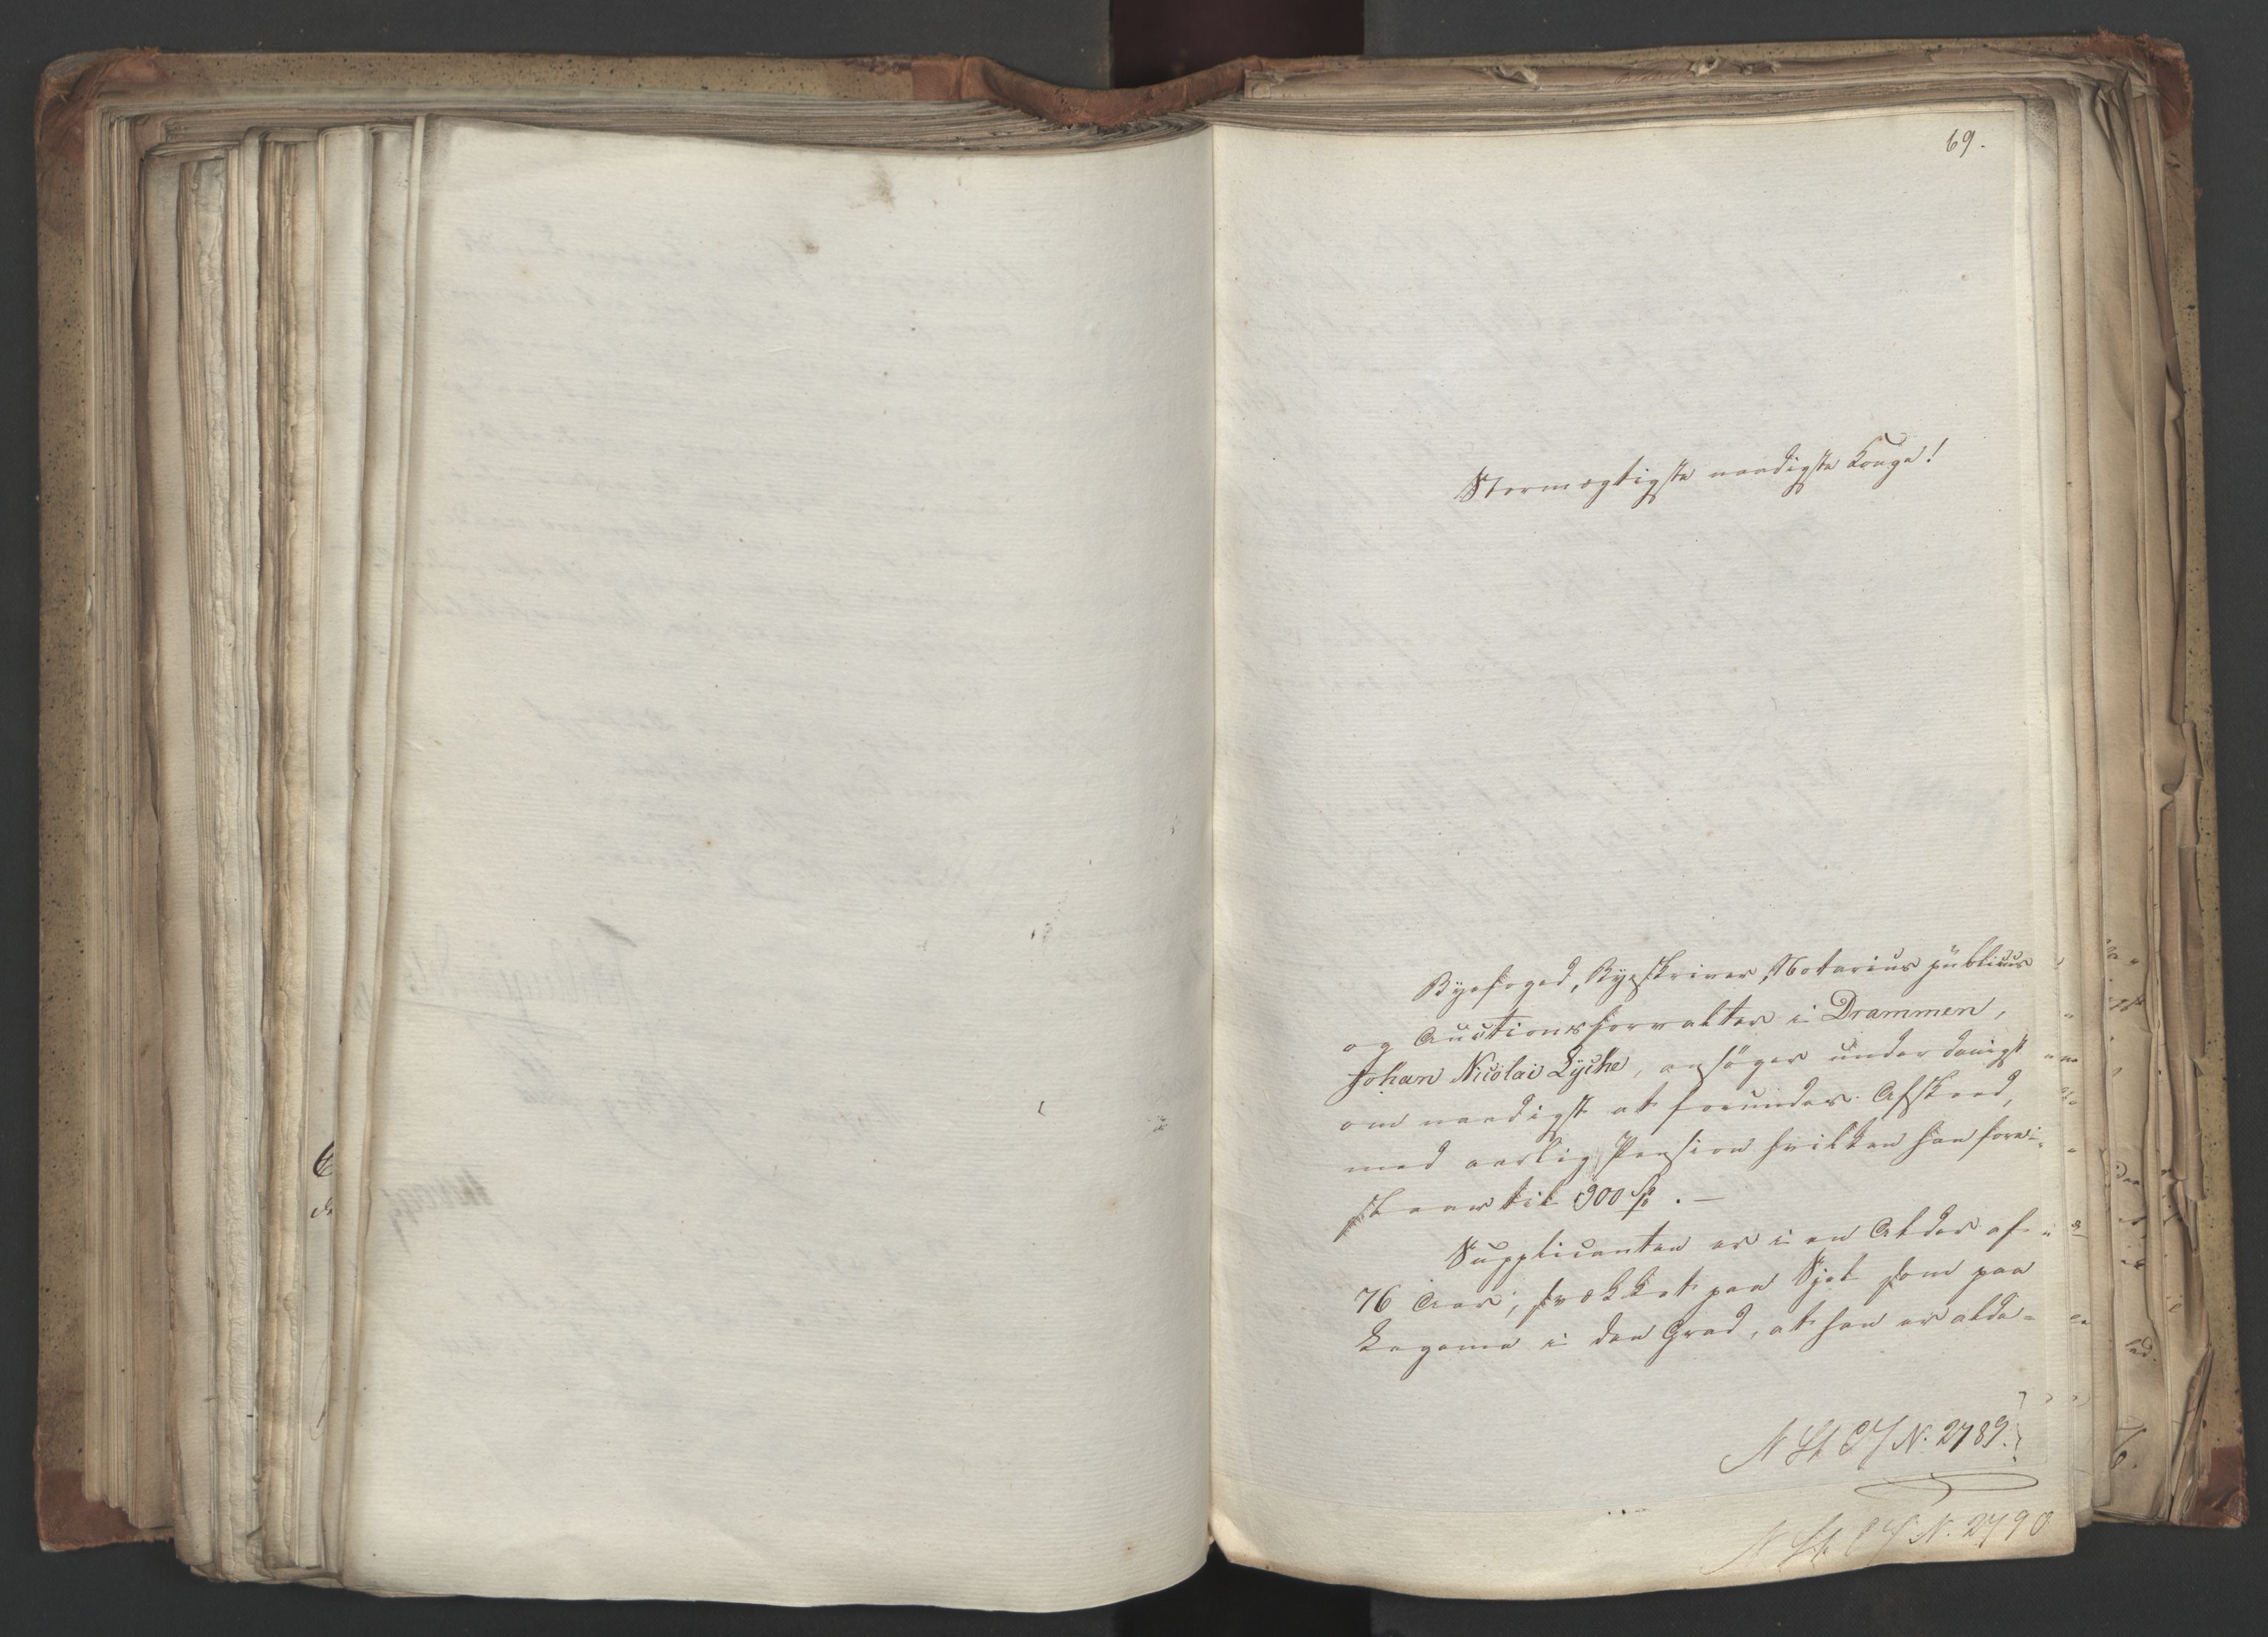 69.
Stormægtigste naadigste Konge!
Byefoged, Byeskriver, Notarius publicus
og Auctionsforvalter i Drammen,
Johan Nicolai Lyche, ansøger underdanigst
om naadigst at forundes Afskeed,
med aarlig Pension hvilken han foresi-
til 900 Sp. —
Supplicanten er i en Alder af
76 Aar, svækket paa Sjel som paa
Legeme i den Grad, at han er alde-
N St EX N. 2789.
N St EX N. 2790